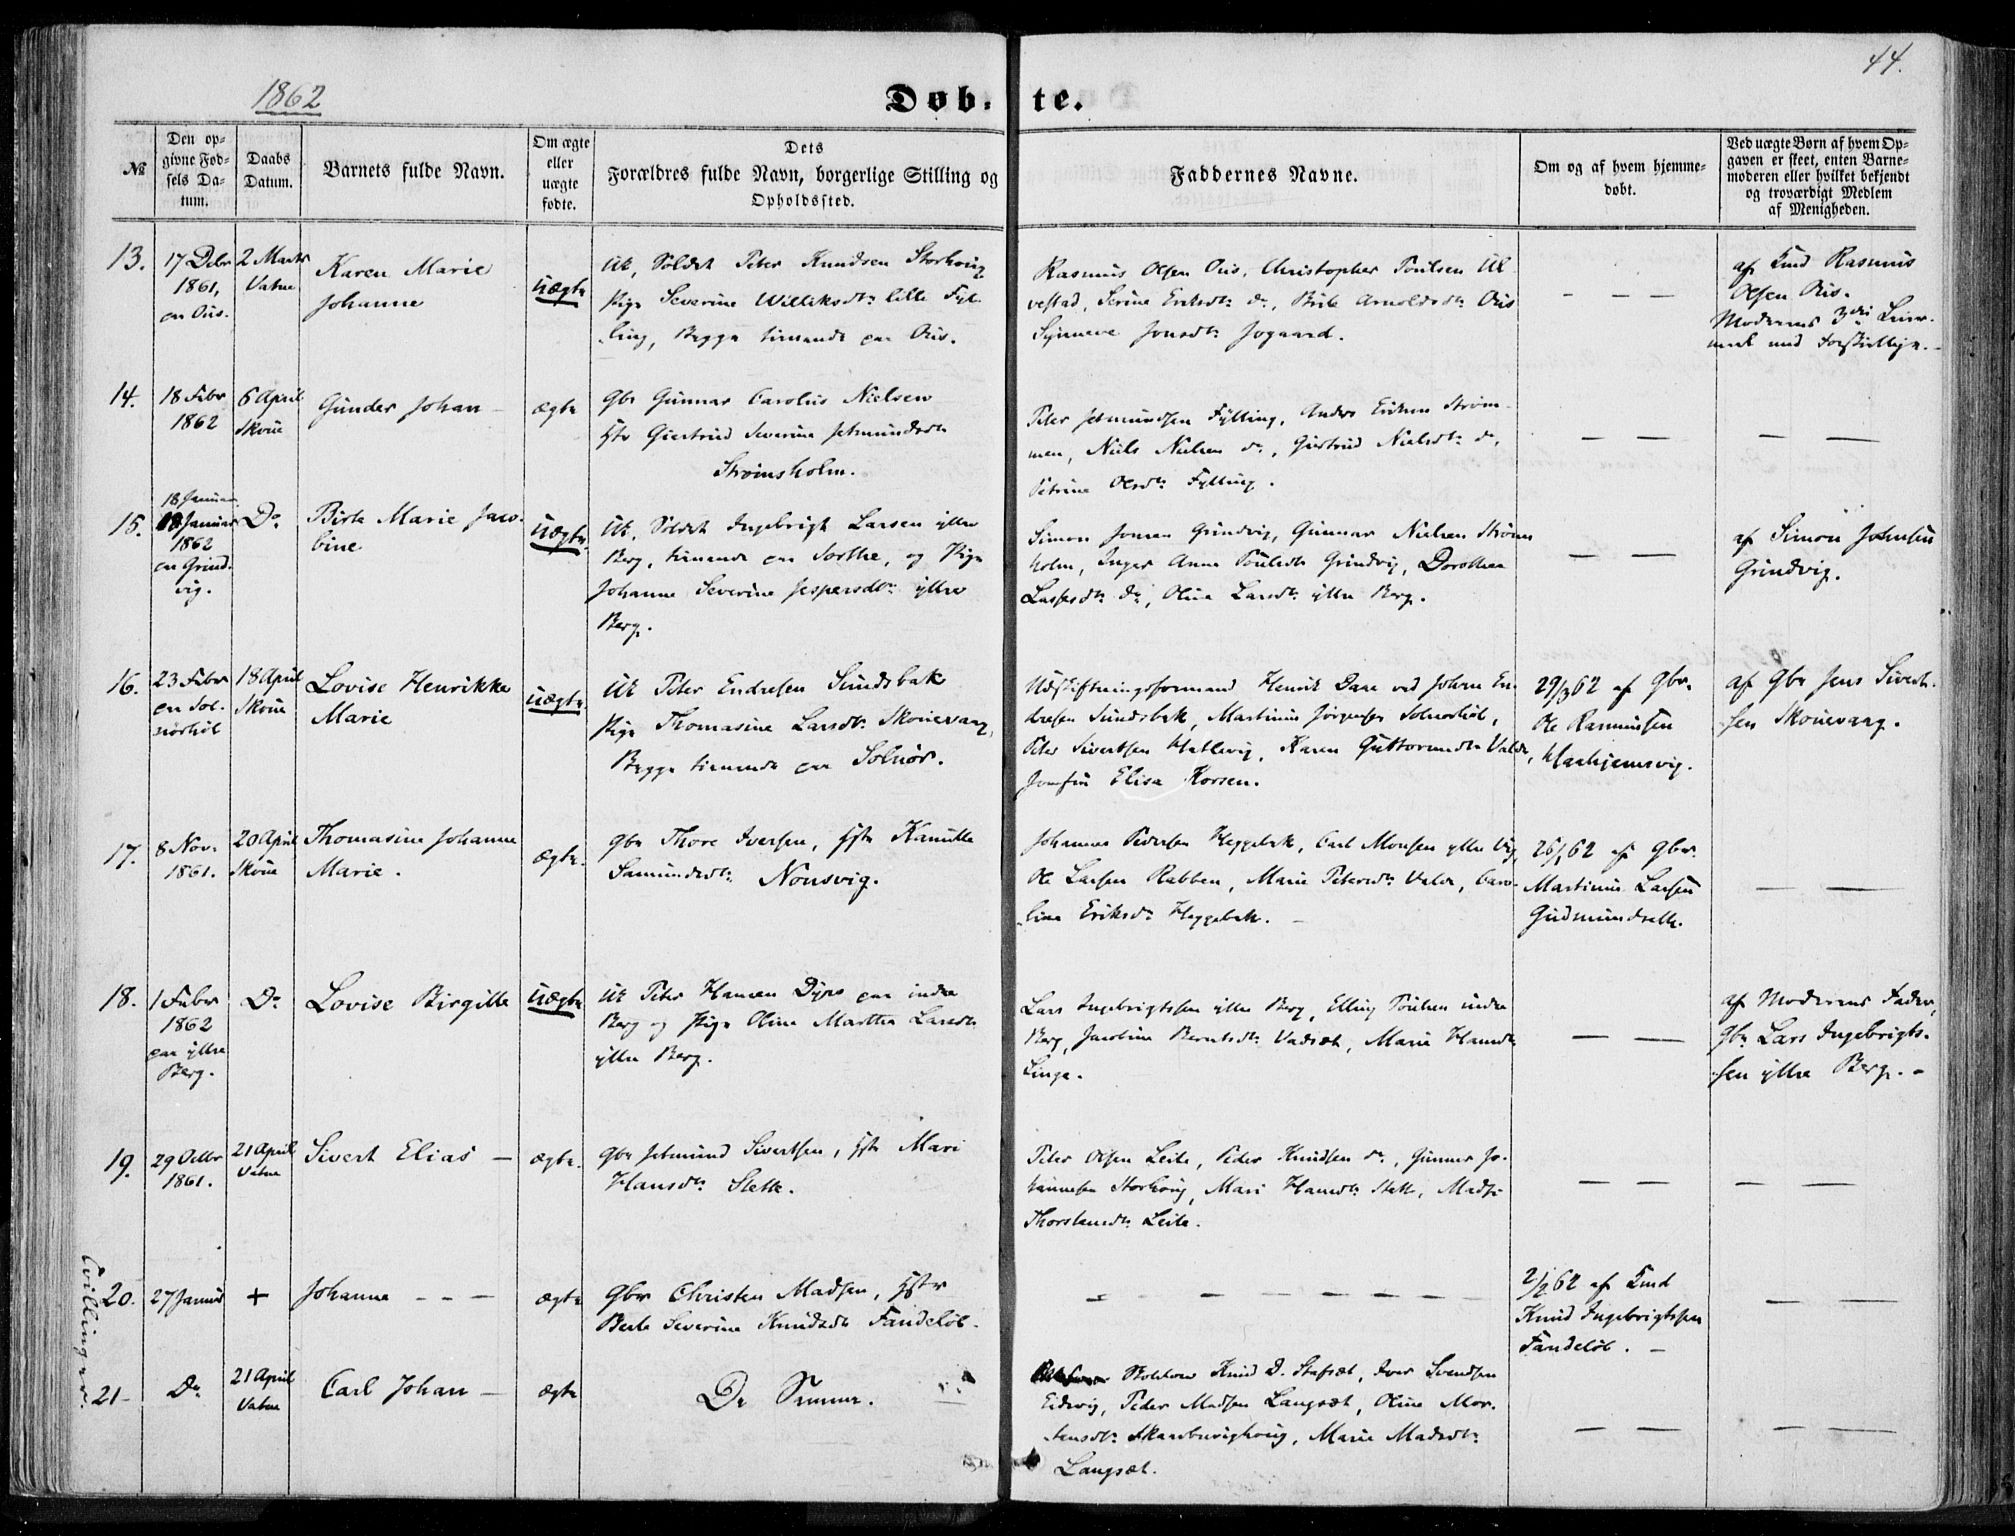 44.
1862
Døb- te.
№
Den op-
givne Fød-
sels Da-
tum.
Daabs
Datum.
Barnets fulde Navn.
Om ægte
eller
uægte
fødte.
Dets
Forældres fulde Navn, borgerlige Stilling og
Opholdssted.
Faddernes Navne.
Om og af hvem hjemme-
døbt.
Ved uægte Børn af hvem Op-
gaven er skeet, enten Barne-
moderen eller hvilket bekjendt
og troværdigt Medlem
af Menigheden.
13.
17 Debr
1861,
paa Øris.
2 Marts
Vatne
Karen Marie
Johanne
uægte
Uk, Soldat Peter Knudsen Storhoug
Pige Severine Willeksdtr lille Fyl-
ling, Begge tienende paa
Rasmus Olsen Christopher Poulsen Ul-
vestad, Serine Eriksdtr do, Brite Arnoldsdtr
Synneve Jonsdtr Jogaard.
— — —
af Rasmus
Olsen
Moderens 3die Leier-
maal med Forskiellige. -
14.
18 Febr
1862
6 April
Skoue
Gunder Johan —
ægte
Gbr Gunnar Carolus Nielsen
Hst Giertrud Severine Jetmundsdtr
Strømsholm.
Peter Jetmundsen Fylling, Anders Strøm-
men, Niels Nielsen do, Giertrud Nielsdtr do,
Petrine Olsdtr Fylling.
— —
— —
15.
18 Januar
18 Januar
1862
paa Grind-
vig.
Do
Birte Marie Jaco-
bine
uægte.
Uk, Soldat Ingebrigt Larsen yttre
Berg, tienende paa Sorthe, og Pige
Johanne Severine Jespersdtr yttre
Berg.
Simon Jonsen Grindvig, Gunnar Nielsen Strøms
holm, Inger Anne Poulsdtr Grindvig, Dorothea
Lassesdtr do, Oline Larsdtr yttre Berg.
— —
af Simon Johnsen
Grindvig.
16.
23 Febr
paa Sol-
nørhol
18 April
Skoue
Lovise Henrikke
Marie
uægte.
Uk Peter Endresen Sundsbak
Pige Thomasine Larsdtr Skouevaag,
Begge tienende paa Solnør.
Udskiftningsformand Henrik Daae ved Johan En-
dresen Sundsbak, Martinus Jørgensen Solnørhol,
Peter Sivertsen Hatlevig, Karen Guttormsdtr Valde,
Jomfru Elisa Korsen.
29/3 62 af Gbr.
Ole Rasmussen
Haahjemsvig.
af Gbr Jens Sivert-
sen Skouevaag.
17.
8 Nov.
1861.
20 April
Skoue
Thomasine Johanne
Marie.
ægte.
Gbr Thore Iversen, Hst Kanutte
Samundsdtr Nonsvig.
Johannes Pedersen Heggebak, Carl Monsen yttre Vig,
Ole Larsen Rabben, Marie Petersdtr Valde, Caro-
line Eriksdtr Heggebak. -
26/1 62 af Gbr.
Martinus Larsen
Gudmundsett.
— —
18.
1 Febr
1862
paa yttre
Berg.
Do
Lovise Birgitte
uægte
Uk Peter Hansen Dyre paa indre
Berg og Pige Oline Marthea Larsdtr
yttre Berg.
Lars Ingebrigtssen yttre Berg, Elling Poulsen indre
Berg, Jacobine Berntsdtr Vadset, Marie Hansdtr
Linge.
— —
af Moderens Fader,
Gbr Lars Ingebrigts-
sen yttre Berg. -
19.
29 Octbr
1861.
21 April
Vatne
Sivert Elias —
ægte.
Gbr Jetmund Sivertsen, Hst Mari
Hansdtr Slette.
Peter Olsen Leite, Peder Knudsen do, Gunner Jo-
hannesen Storhoug, Mari Hansdtr Slette, Madsi
Thorstensdtr Leite.
— —
— —
Tvillinger.
20.
27 Januar
+
Johanne - - -
ægte
Gbr Christen Madsen, Hst
Berte Severine Knudsdtr Tandeløb.
- - - - - - - -
2/2 62 af
Knud Ingebrigtssen
Tandeløb. -
— —
21-
Do
21 April
Vatne
Carl Johan —
ægte
De Samme.
Skoleholder Knud D. Stafset, Iver Svendsen
Eidsvig, Peder Madsen Langset, Oline Mor-
tensdtr Skaarbrevighoug, Marie Madsdtr
Langset.
— —
— —